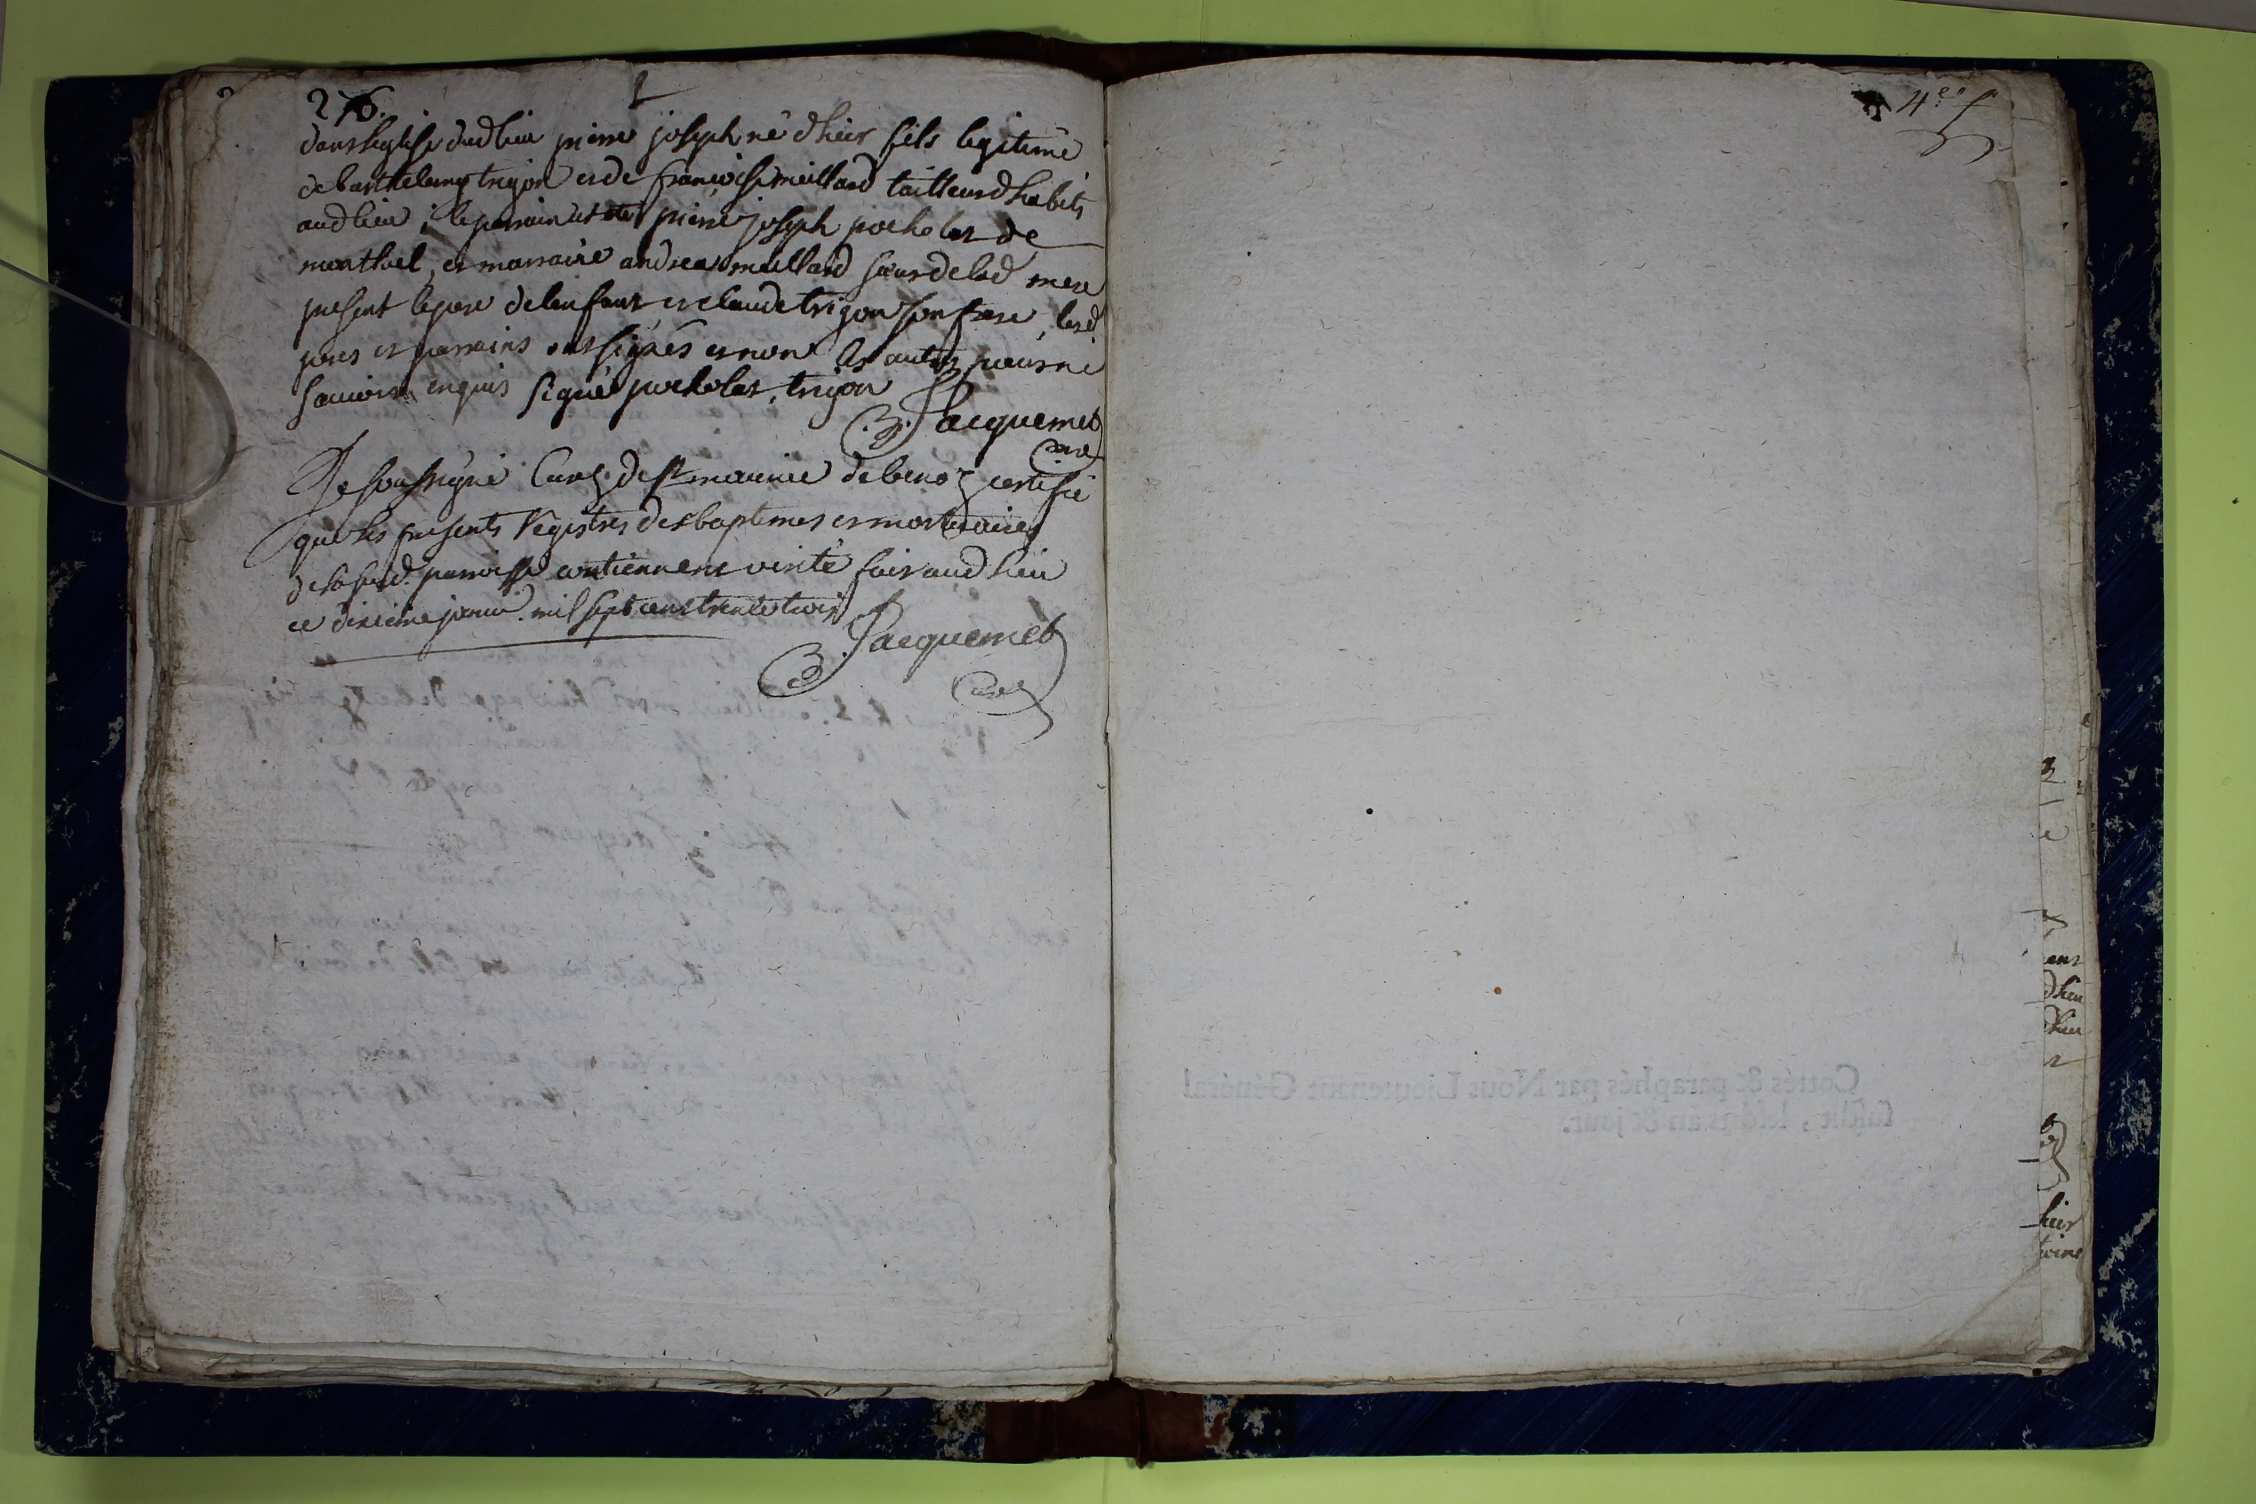 276.
dans leglise dud lieu pierre joseph né d hier fils legitime
de barthelemy trigon et de francoise meillard tailleur d habits
aud lieu ; le parrain est pierre joseph pocholat de
montluel, et marraine andrea meillard sœur de lad mere
present le pere de lenfant et claude trigon son frere, lesd
peres et parrains ont signés et non les autres pour ne
scavoir enquis signé pocholat, trigon
Jacquemet
curé
Je soussigné Curé de st maurice de beno certifie
que les presents registres des baptemes et mortuaires
de la susd. parroisse contiennent verité fait aud lieu
ce dixieme janvi. mil sept cent trente trois
Jacquemet
Curé
4e f
Cottés & paraphés par Nous Lieutenant Général
susdit, lesdits an & jour.
ent
d hier
d hier
hier